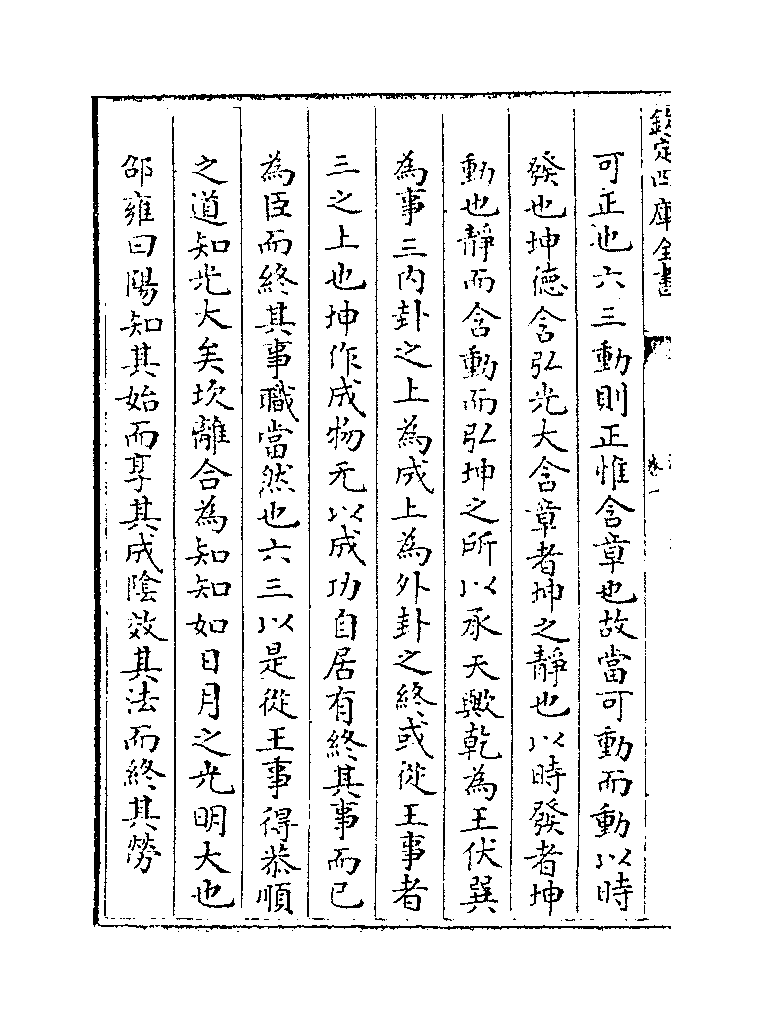 欽定四庫全書
卷一
可正也六三動則正惟含章也故當可動而動以時
發也坤德含弘光大含章者坤之靜也以時發者坤
動也靜而含動而弘坤之所以承天歟乾為王伏巽
為事三内卦之上為成上為外卦之終或從王事者
三之上也坤作成物无以成功自居有終其事而已
為臣而終其事職當然也六三以是從王事得恭順
之道知光大矣坎離合為知知如日月之光明大也
邵雍曰陽知其始而享其成陰效其法而終其勞